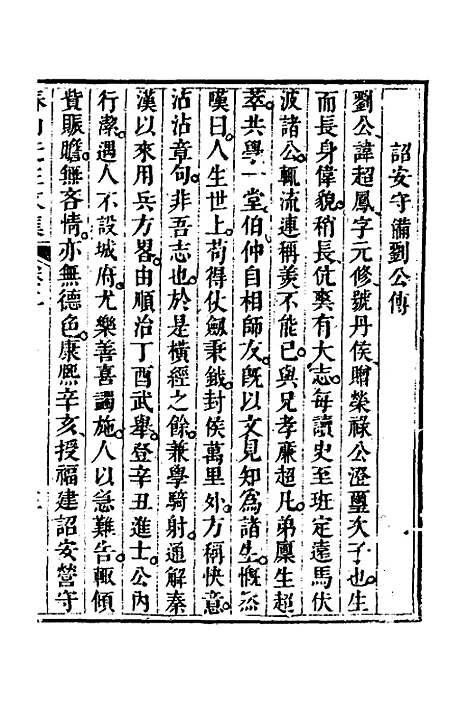 詔安守備劉公傳
劉公諱超鳳字元修號丹侯贈榮祿公澄璽次子也生
而長身偉貌稍長伉爽有大志每讀史至班定遠馬伏
波諸公輒流連稱羨不能已與兄孝廉超凡弟廩生超
萃共學一堂伯仲自相師友旣以文見知為諸生慨然
嘆曰人生世上苟得仗劍秉鉞封侯萬里外方稱快意
沾沾章句非吾志也於是橫經之餘兼學騎射通解秦
漢以來用兵方畧由順治丁酉武舉登辛丑進士公內
行潔遇人不設城府尤樂善喜譪施人以急難告輒傾
貲賑贍無吝情亦無德色康熙辛亥授福建詔安營守